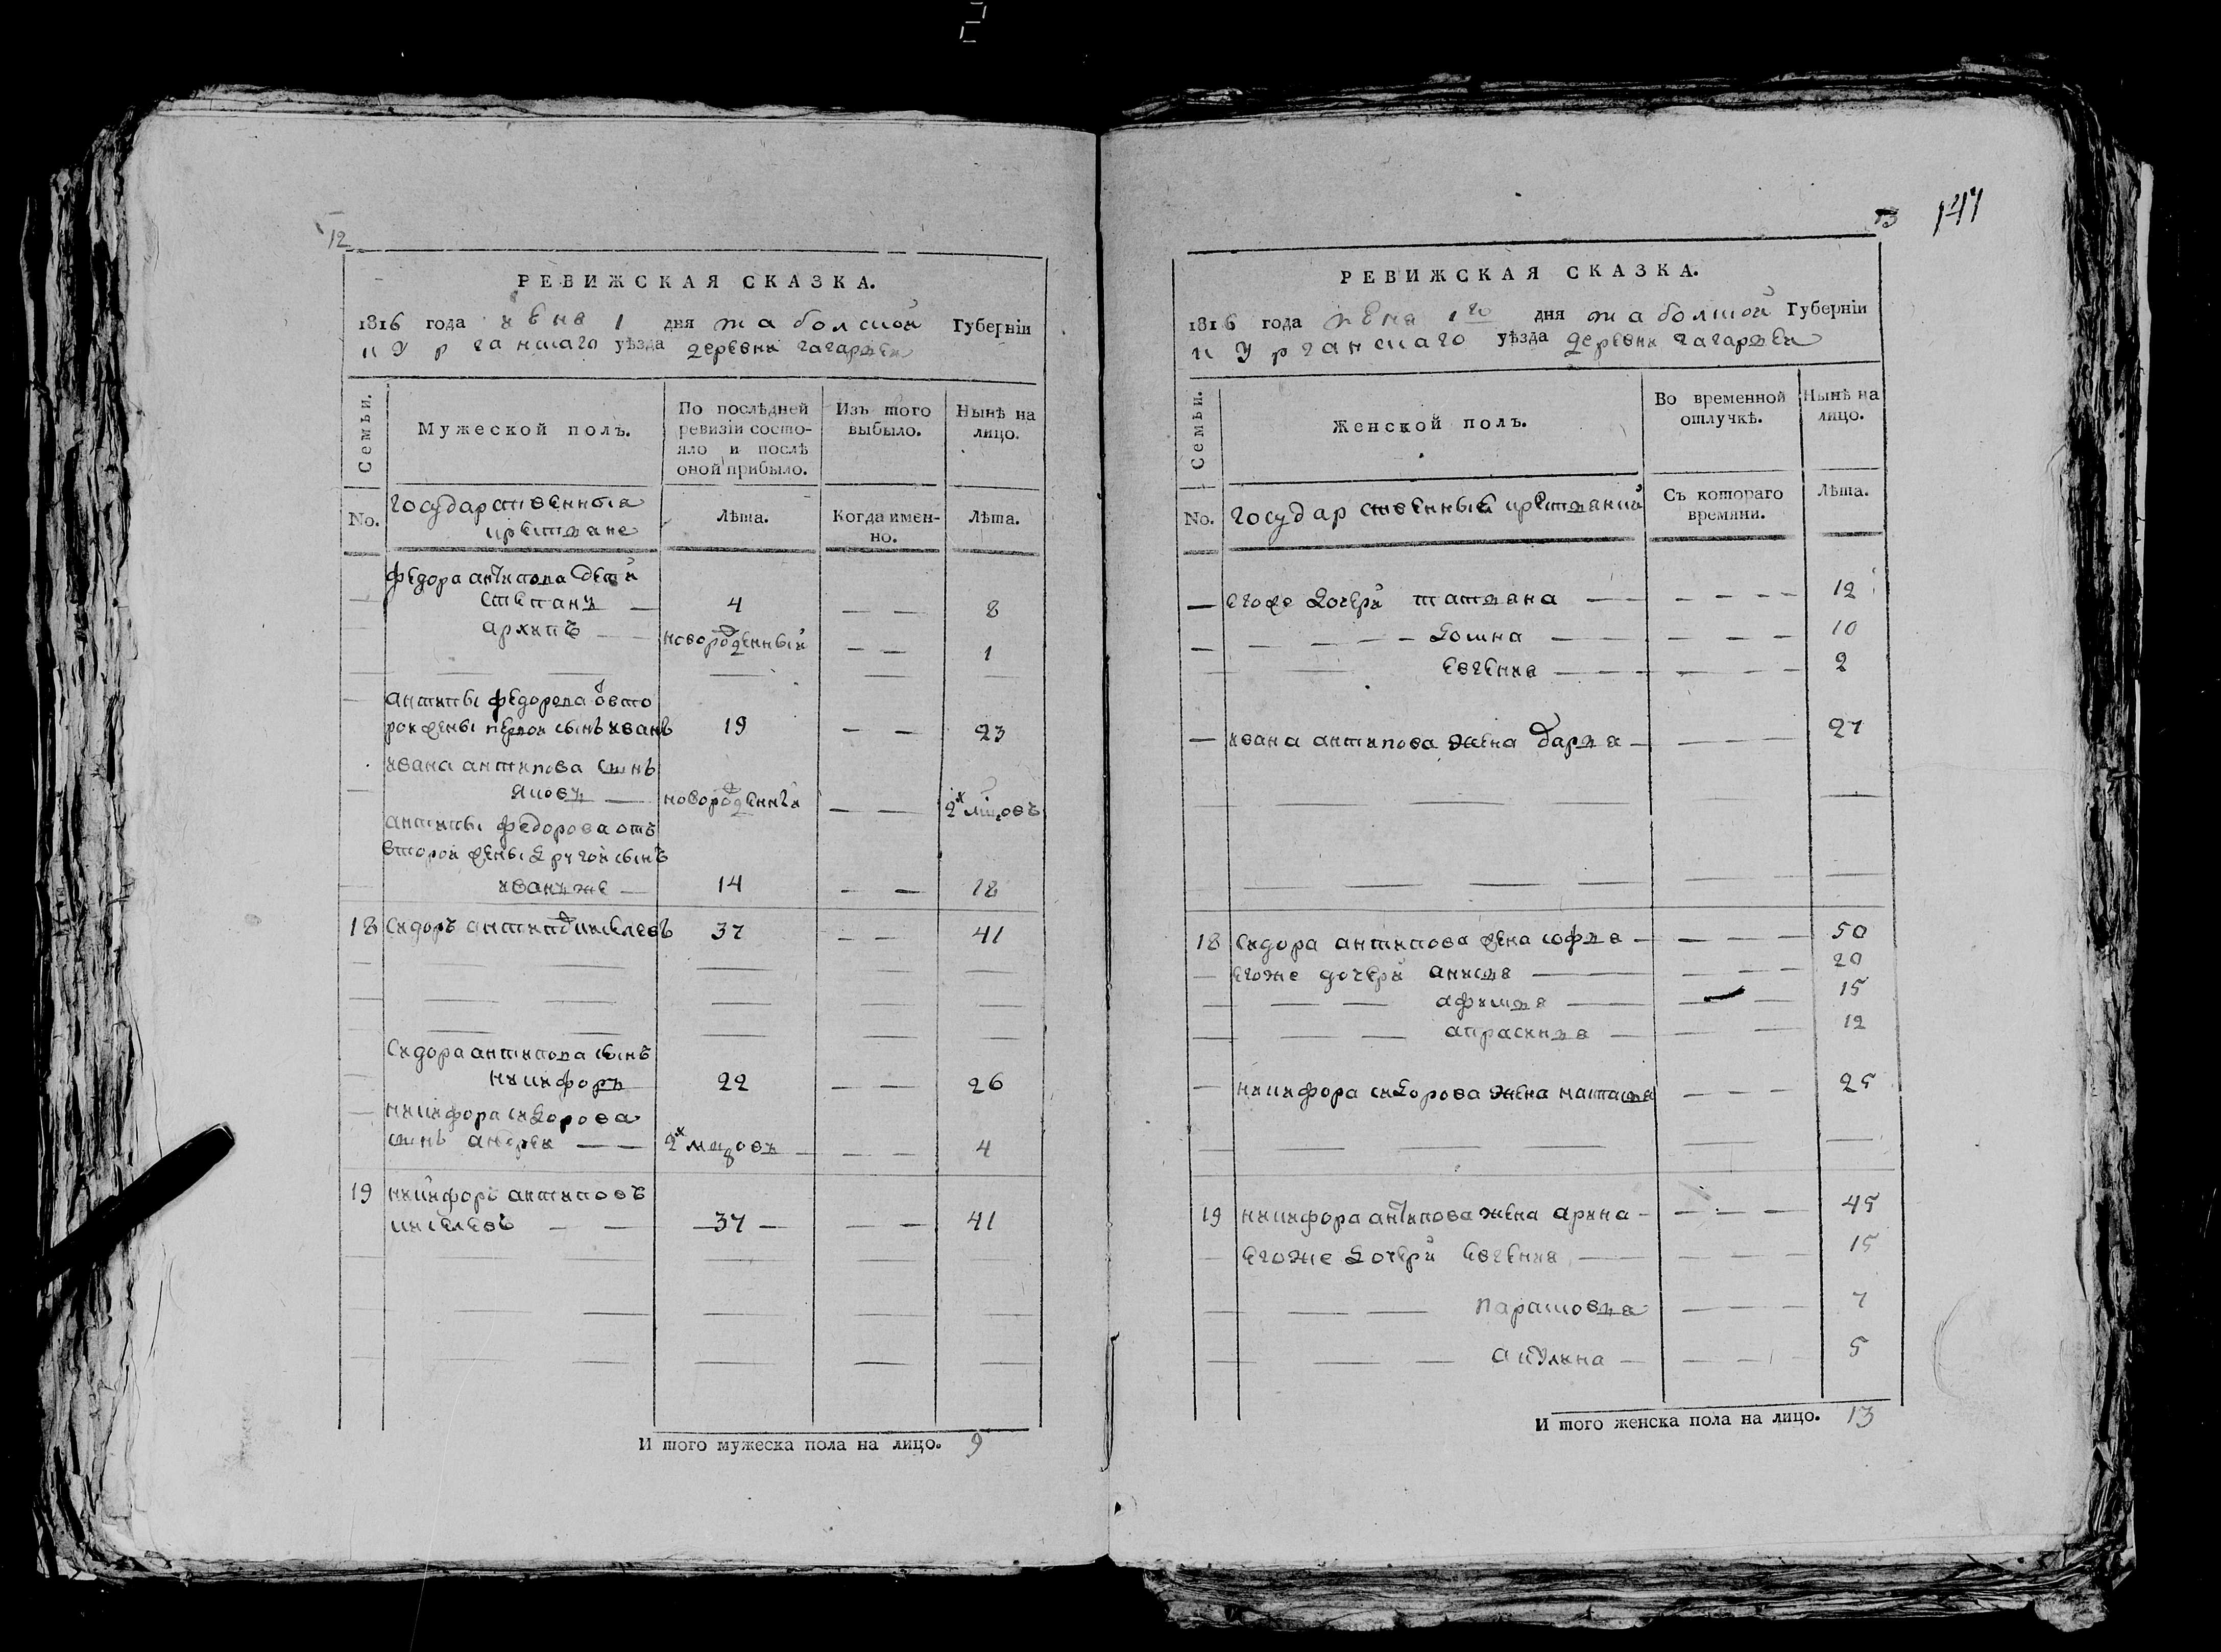 12
РЕВИЖСКАЯ СКАЗКА.
1816 года июня 1 дня таболской Губерніи
курганскаго уѣзда деревни гагарьеи
Семьи.
Мужеской полъ.
По послѣдней ревизіи состояло и послѣ оной прибыло.
Изъ того выбыло.
Нынѣ на лицо.
No.
государственныя
крестьяне
Лѣта.
Когда именно.
Лѣта.
федора антипова дети
степанъ — 4 — — 8
архипъ — — новорожденный — — 1
антипы федорова отъ
жены первой сынъ иванъ 19 — — 23
ивана антипова сынъ
яковъ — новорожденный — — 2х мцовъ
антипы федорова отъ
второй жены другой сынъ
иванъ же — 14 — — 18
18 сидоръ антипов киселевъ 37 — — 41
сидора антипова сынъ
никифоръ 22 — — 26
никифора сидорова
сынъ андреи — — 2х мцовъ — — — 4
19 никифоръ антиповъ
киселевъ — — 37 — — — 41
И того мужеска пола на лицо. 9
13 147
РЕВИЖСКАЯ СКАЗКА.
1816 года июня 1го дня таболской Губерніи
курганскаго уѣзда деревни гагарьеи
Семьи.
Женской полъ.
Во временной отлучкѣ.
Нынѣ на лицо.
No.
государственные крестьянки
Съ котораго времяни.
Лѣта.
— егоже дочери татьяна — — — — — 12
— — — — домна — — — — — 10
евгения — — — — — 2
— ивана антипова жена дарья — — — — 27
18 сидора антипова жена софья — — — — 50
— егоже дочери анисья — — — 20
— — — афимья — — — 15
— — — апрасинья — — — 12
— никифора сидорова жена настасья — — — 25
19 никифора антипова жена арина — — — — 45
— егоже дочери евгения — — — — 15
— — — парасковья — — — 7
— — — акулина — — — — 5
И того женска пола на лицо. 13